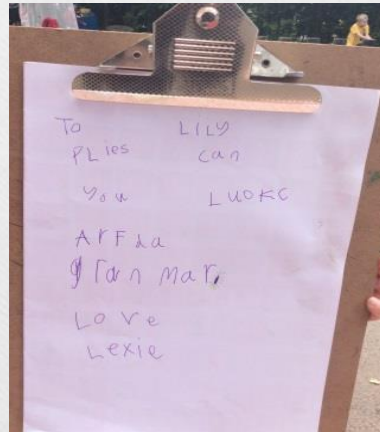 To LILY
PLies can
You LUOKC
ArFda
gran mar.
Love
Lexie